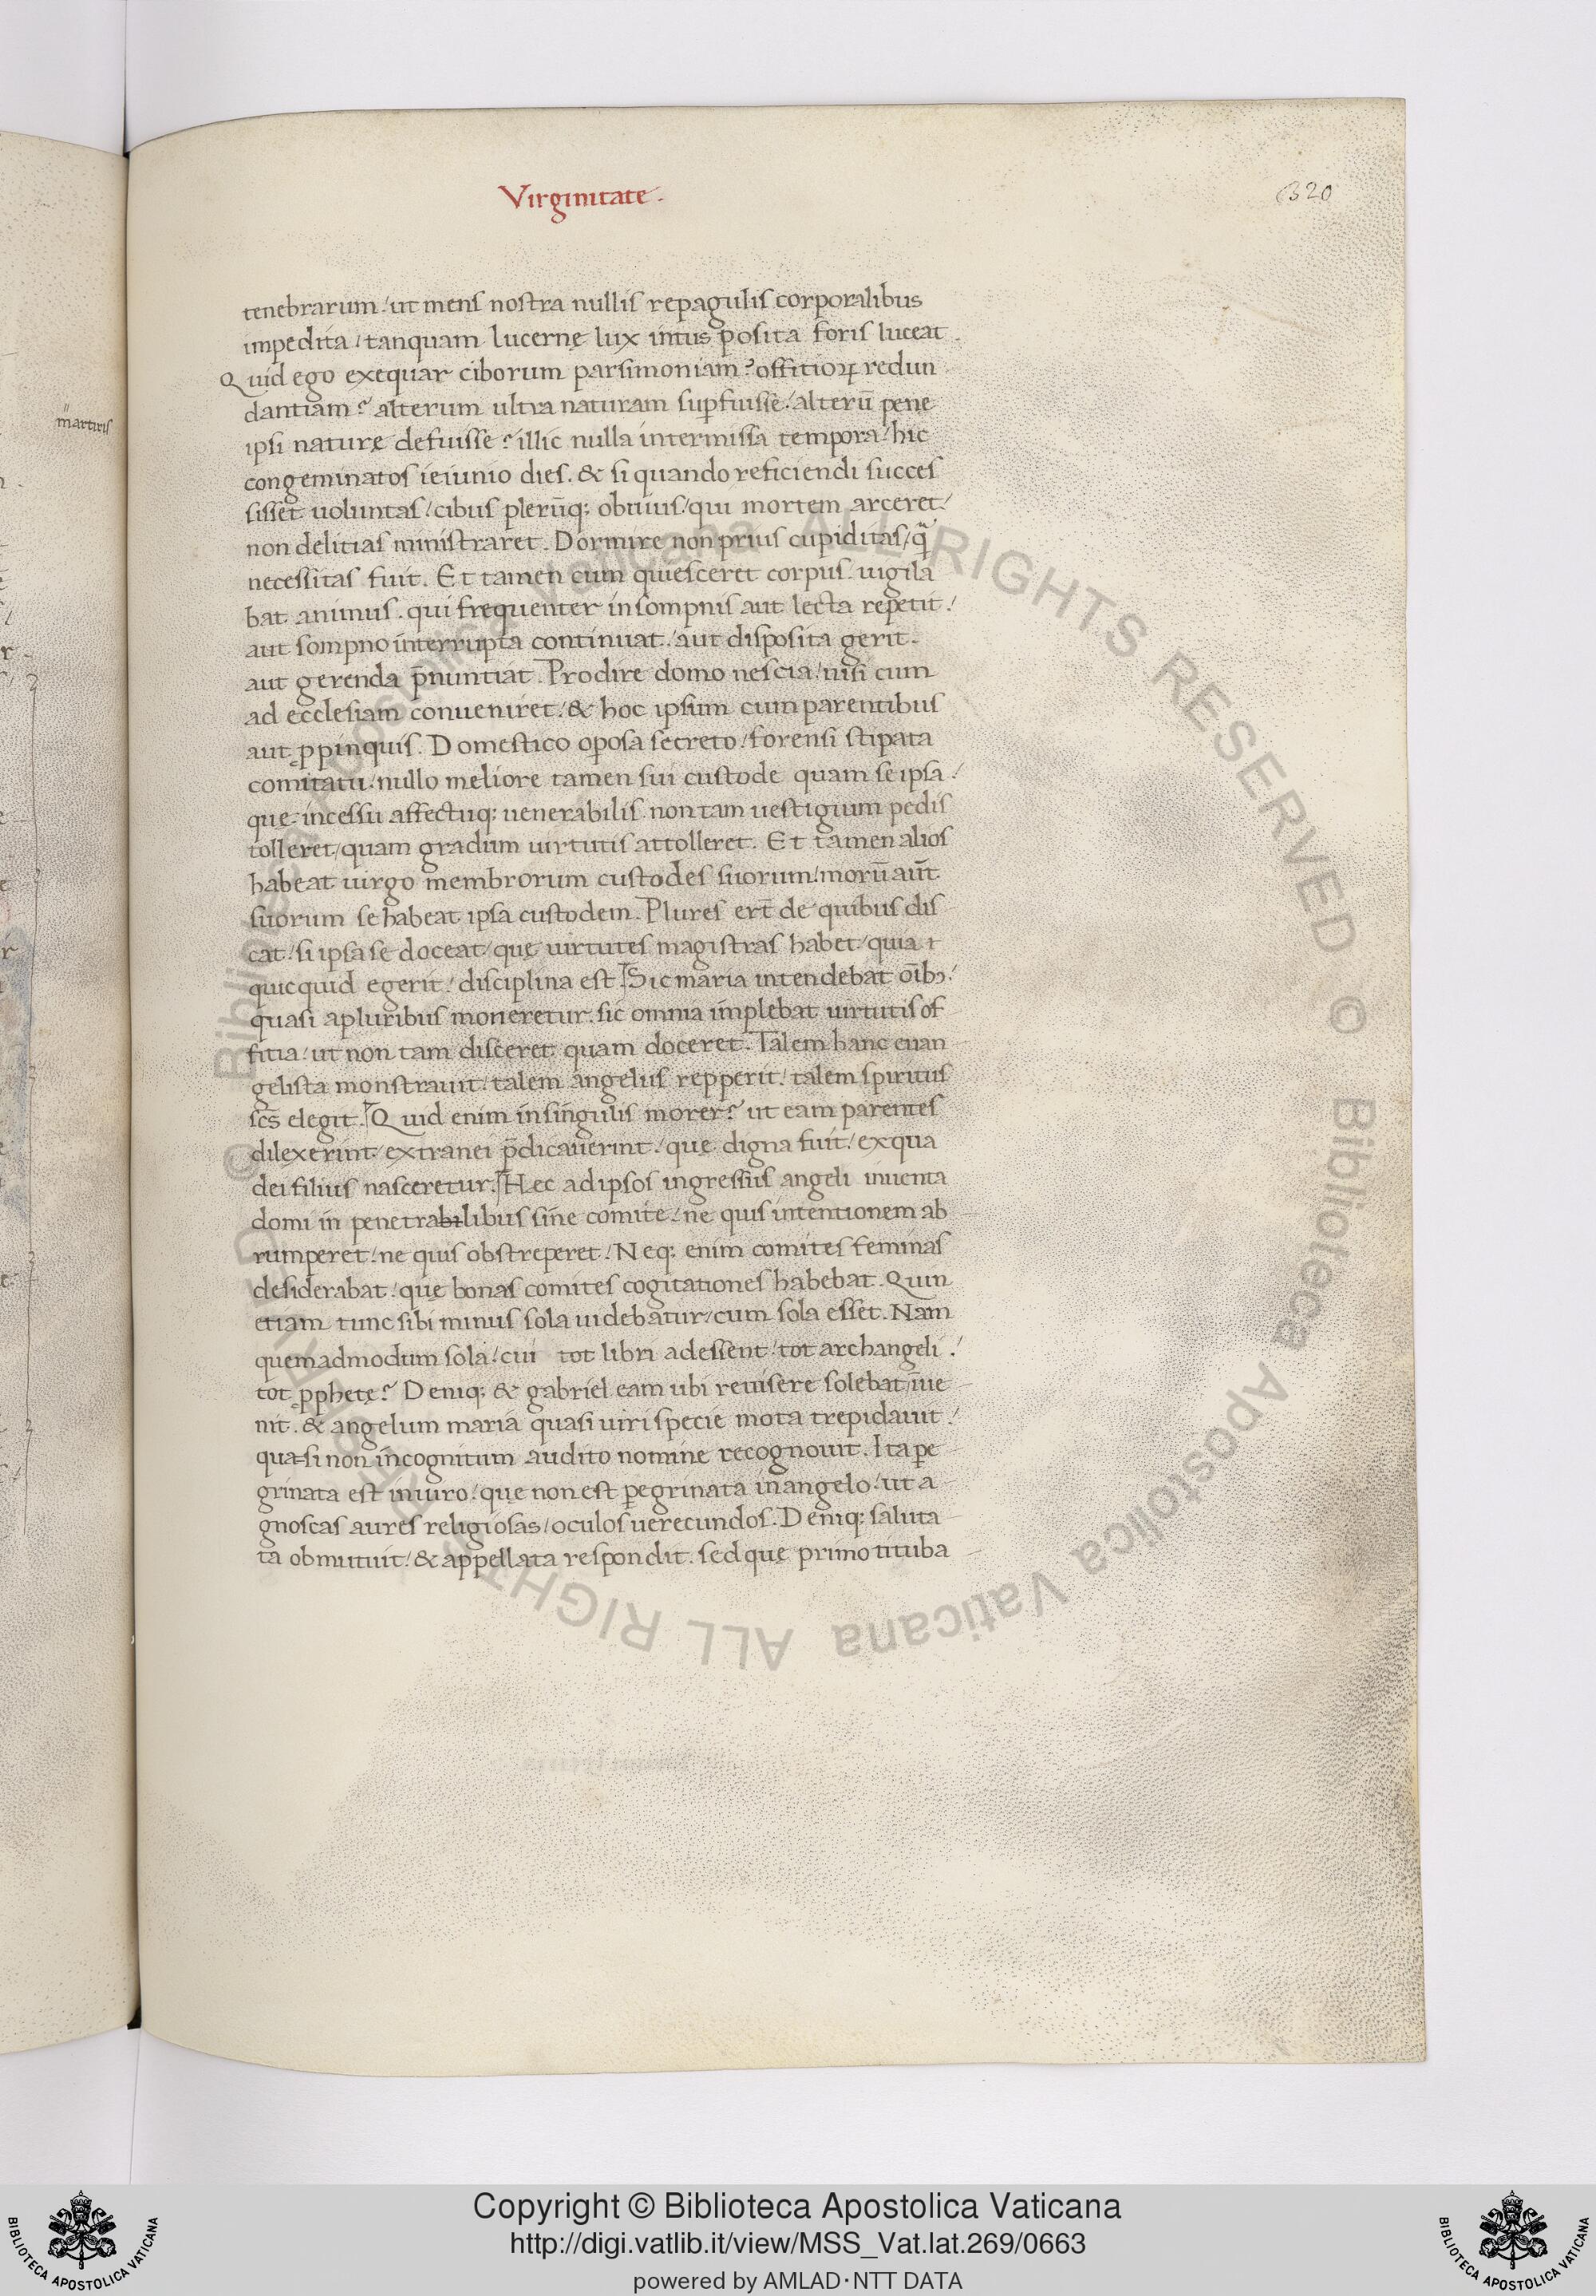 Virginitate.
320
martiris
tenebrarum / ut mens nostra nullis repagulis corporalibus
impedita / tanquam lucernę lux intus posita foris luceat.
Quid ego exequar ciborum parsimoniam? offitioꝝ redun
dantiam? alterum ultra naturam suꝑfuisse / alterū pene
ipsi naturę defuisse? illic nulla intermissa tempora / hic
congeminatos ieiunio dies. & si quando reficiendi succes
sisset uoluntas / cibus plerūq; obuius / qui mortem arceret /
non delitias ministraret. Dormire non prius cupiditas / q̃
necessitas fuit. Et tamen cum quiesceret corpus. uigila
bat animus. qui frequenter in sompnis aut lecta repetit /
aut sompno interrupta continuat / aut disposita gerit.
aut gerenda p̄nuntiat. Prodire domo nescia / nisi cum
ad ecclesiam conueniret / & hoc ipsum cum parentibus
aut ꝓpinquis. Domestico oꝑosa secreto / forensi stipata
comitatu / nullo meliore tamen sui custode quam se ipsa /
quę incessu affectuq; uenerabilis. non tam uestigium pedis
tolleret / quam gradum uirtutis attolleret. Et tamen alios
habeat uirgo membrorum custodes suorum / morū aūt
suorum se habeat ipsa custodem. Plures er̄t de quibus dis
cat / si ipsa se doceat / quę uirtutes magistras habet / quia
quicquid egerit / disciplina est. Sic maria intendebat oīb; /
quasi a pluribus moneretur. sic omnia implebat uirtutis of
fitia / ut non tam disceret quam doceret. Talem hanc euan
gelista monstrauit / talem angelus repperit / talem spiritus
sc̄s elegit. Quid enim in singulis morer? ut eam parentes
dilexerint / extranei p̄dicauerint / quę digna fuit / ex qua
dei filius nasceretur. Hec ad ipsos ingressus angeli inuenta
domi in penetrabilibus sine comite / ne quis intentionem ab
rumperet / ne quis obstreperet / Neq; enim comites feminas
desiderabat / quę bonas comites cogitationes habebat. Quin
etiam tunc sibi minus sola uidebatur / cum sola esset. Nam
quemadmodum sola / cui tot libri adessent / tot archangeli /
tot ꝓphetę? Deniq; & gabriel eam ubi reuisere solebat / īue
nit. & angelum maria quasi uiri specie mota trepidauit /
quasi non incognitum audito nomine recognouit. Ita ꝑe
grinata est in uiro / quę non est ꝑegrinata in angelo / ut a
gnoscas aures religiosas / oculos uerecundos. Deniq; saluta
ta obmutuit / & appellata respondit. sed quę primo tituba
© Biblioteca Apostolica Vaticana ALL RIGHTS RESERVED © Biblioteca Apostolica Vaticana ALL RIGHTS RESERVED
Copyright © Biblioteca Apostolica Vaticana
http://digi.vatlib.it/view/MSS_Vat.lat.269/0663
powered by AMLAD·NTT DATA
BIBLIOTECA APOSTOLICA VATICANA
BIBLIOTECA APOSTOLICA VATICANA